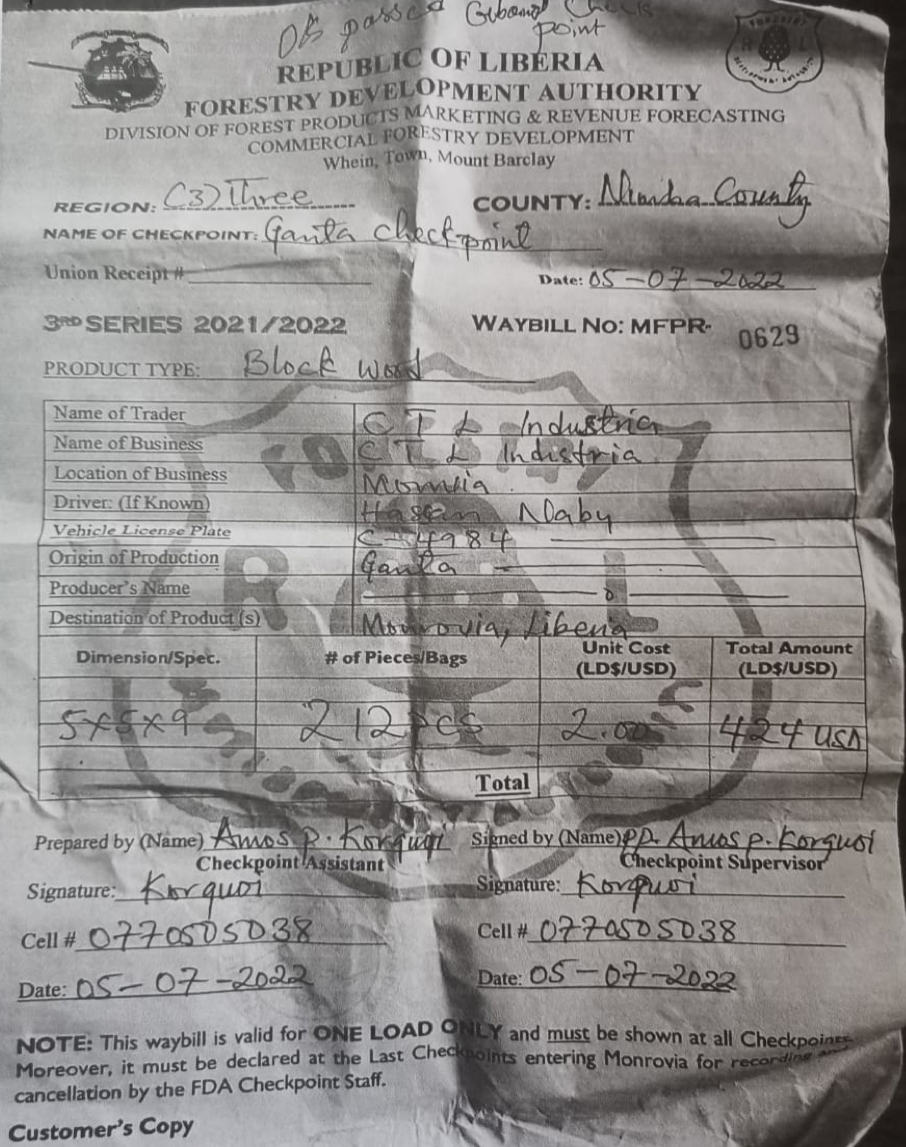 OK passed Gbanma Check
point
REPUBLIC OF LIBERIA
FORESTRY DEVELOPMENT AUTHORITY
DIVISION OF FOREST PRODUCTS MARKETING & REVENUE FORECASTING
COMMERCIAL FORESTRY DEVELOPMENT
Whein, Town, Mount Barclay
REGION: (3) Three
COUNTY: Nimba County
NAME OF CHECKPOINT: Ganta checkpoint
Union Receipt #
Date: 05-07-2022
3RD SERIES 2021/2022
WAYBILL NO: MFPR- 0629
PRODUCT TYPE: Block wood
Name of Trader C T L Industria
Name of Business C T L Indistria
Location of Business
Driver: (If Known) Hassan
Vehicle License Plate C-4984
Origin of Production Ganta
Producer's Name
Destination of Product (s) Monrovia, Liberia
Dimension/Spec. # of Pieces/Bags Unit Cost (LD$/USD) Total Amount (LD$/USD)
5x5x9 212 pcs 2.00 424 USD
Total
Prepared by (Name) Amos p. Korquoi
Checkpoint Assistant
Signature: Korquoi
Cell # 0770505038
Date: 05-07-2022
Signed by (Name) pp. Amos p. Korquoi
Checkpoint Supervisor
Signature: Korquoi
Cell # 0770505038
Date: 05-07-2022
NOTE: This waybill is valid for ONE LOAD ONLY and must be shown at all Checkpoints.
Moreover, it must be declared at the Last Checkpoints entering Monrovia for recording and
cancellation by the FDA Checkpoint Staff.
Customer's Copy